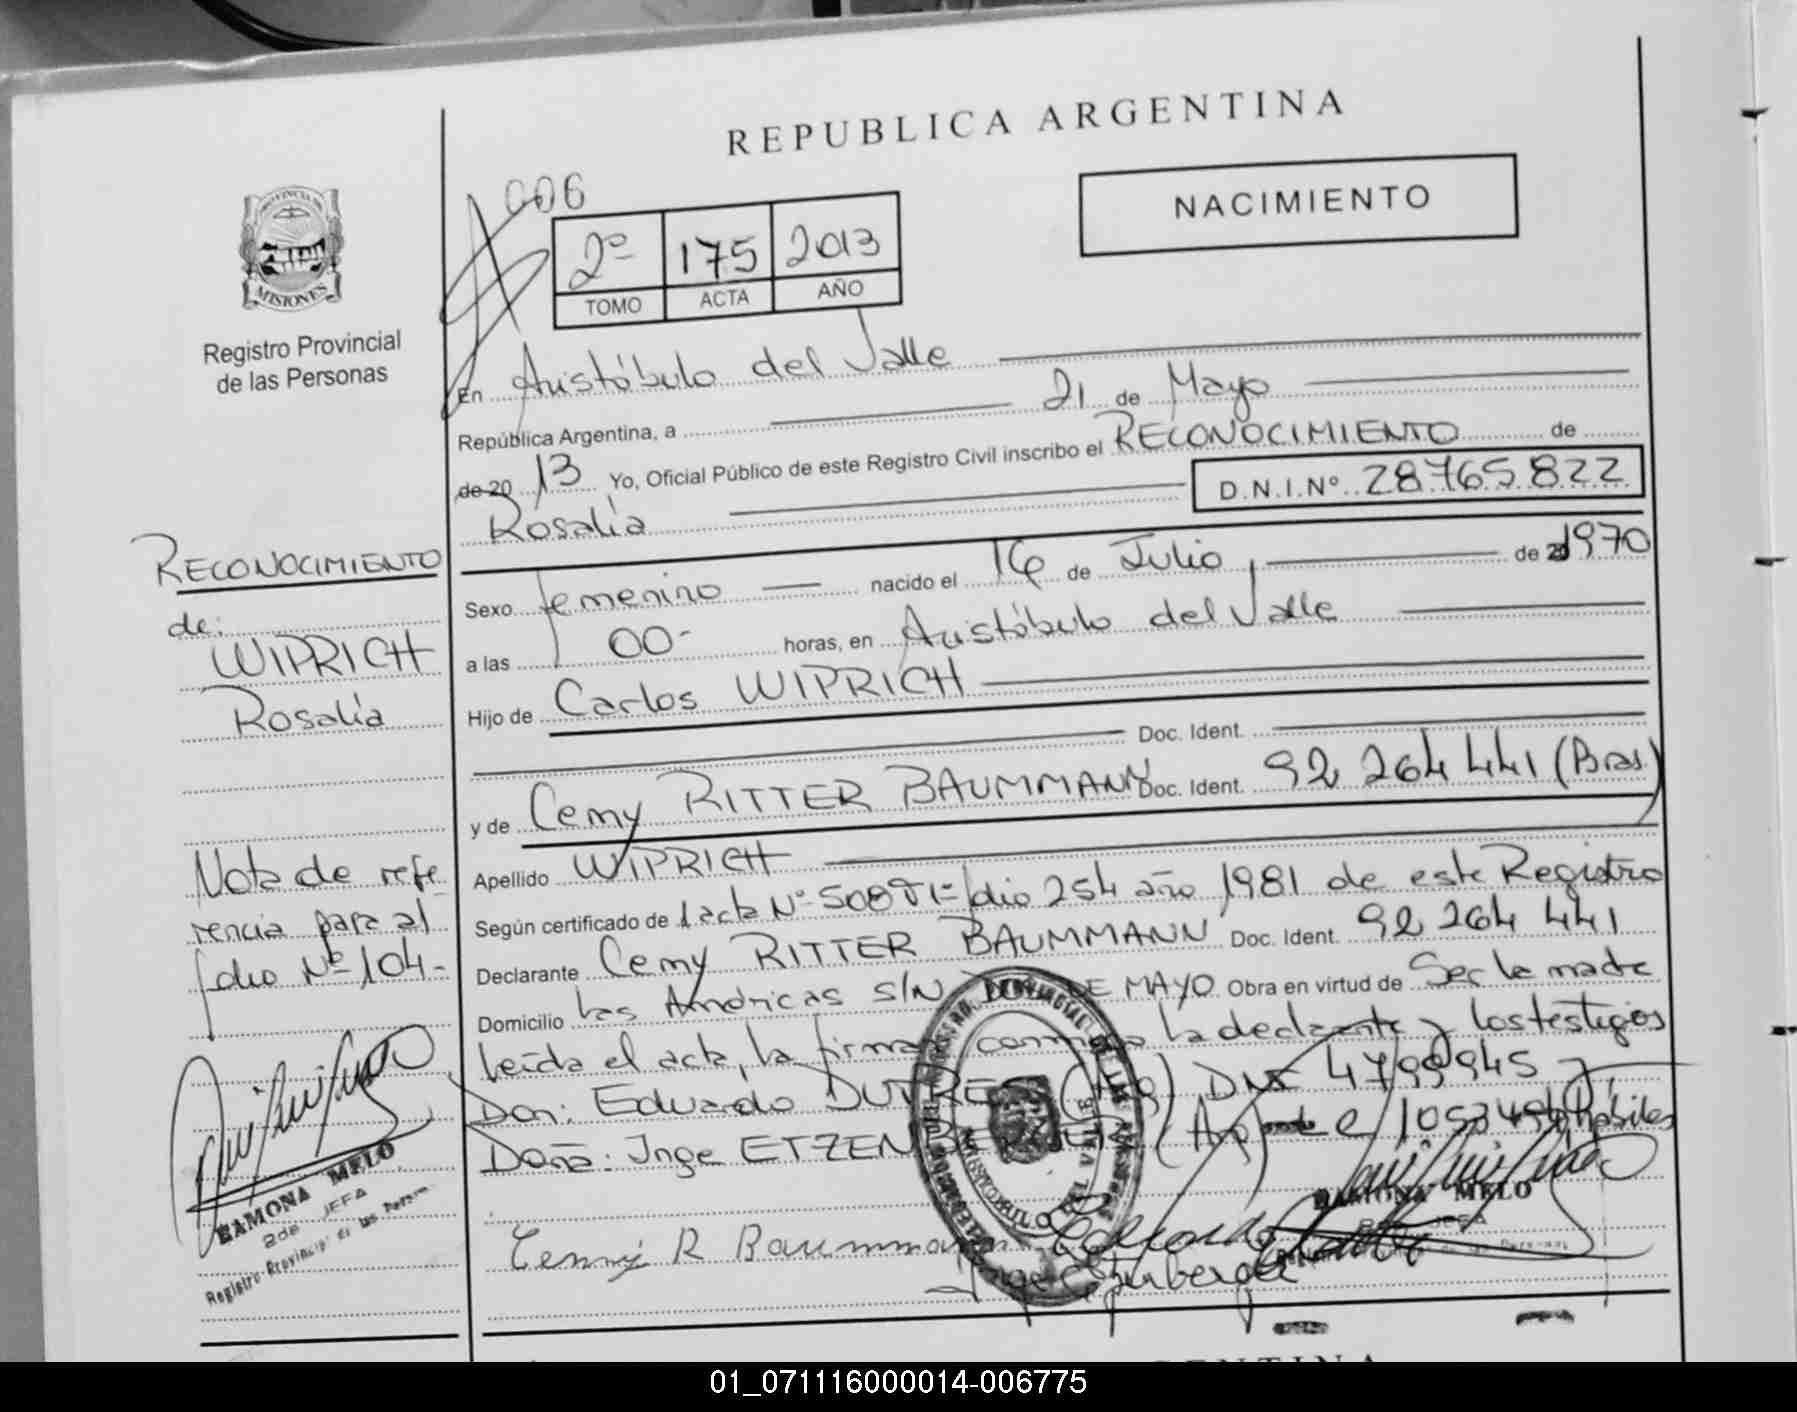 REPUBLICA ARGENTINA
NACIMIENTO
006
2º 175 2013
TOMO ACTA AÑO
PROVINCIA DE
MISIONES
Registro Provincial
de las Personas
En Aristóbulo del Valle
República Argentina, a 21 de Mayo
de 20 13 Yo, Oficial Público de este Registro Civil inscribo el RECONOCIMIENTO de
Rosalía D.N.I.Nº 28765822
Sexo femenino nacido el 16 de Julio, de 20 1970
a las 00- horas, en Aristóbulo del Valle
Hijo de Carlos WIPRICH
Doc. Ident.
y de Cemy RITTER BAUMMANN Doc. Ident. 92 264 441 (Bras.)
Apellido WIPRICH
Según certificado de acta Nº 508 folio 254 año 1981 de este Registro
Declarante Cemy RITTER BAUMMANN Doc. Ident. 92 264 441
Domicilio Las Américas S/N DE MAYO Obra en virtud de Ser la madre
Leída el acta, la firma conmigo la declarante y los testigos
Don: Eduardo DNI 4799945 y
Doña: Inge hábiles
Cemy R Baummann
RAMONA MELO
RECONOCIMIENTO
de:
WIPRICH
Rosalía
Nota de refe
rencia para al
folio Nº 104-
RAMONA MELO
2da JEFA
Registro Provincial de las Person
01_071116000014-006775